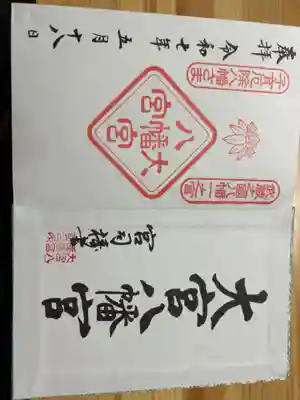 奉拝 令和七年五月十八日
子育厄除八幡さま
武蔵國八幡一之宮
大宮八幡宮
宮司
大宮八幡宮